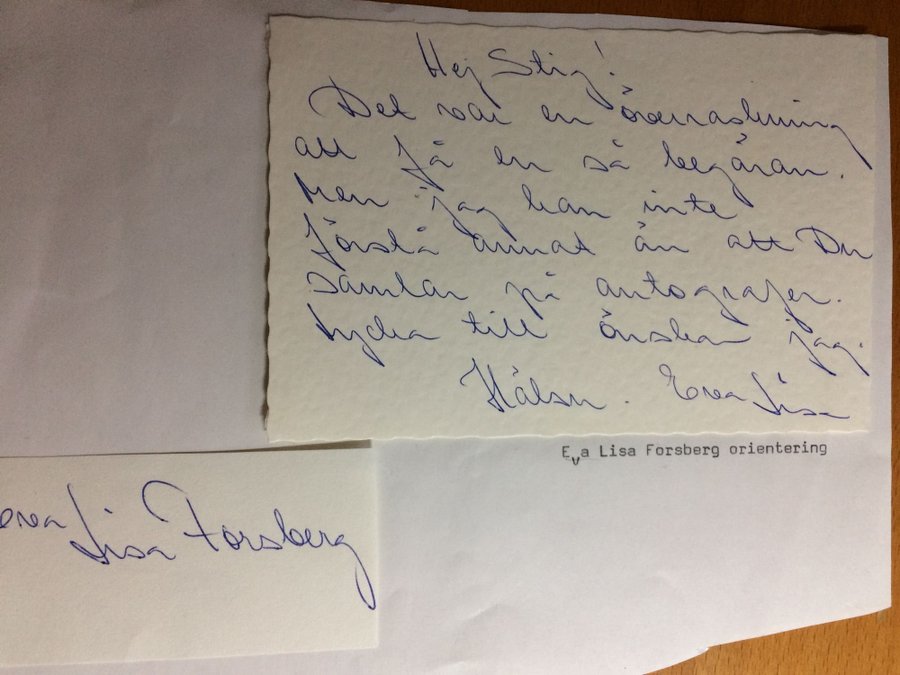 Hej Stig!
Det var en överraskning
att få en så begäran.
Men jag kan inte
förstå annat än att Du
samlar på autografer.
Lycka till önskar jag.
Hälsn. Eva Lisa
Eva Lisa Forsberg orientering
Eva Lisa Forsberg